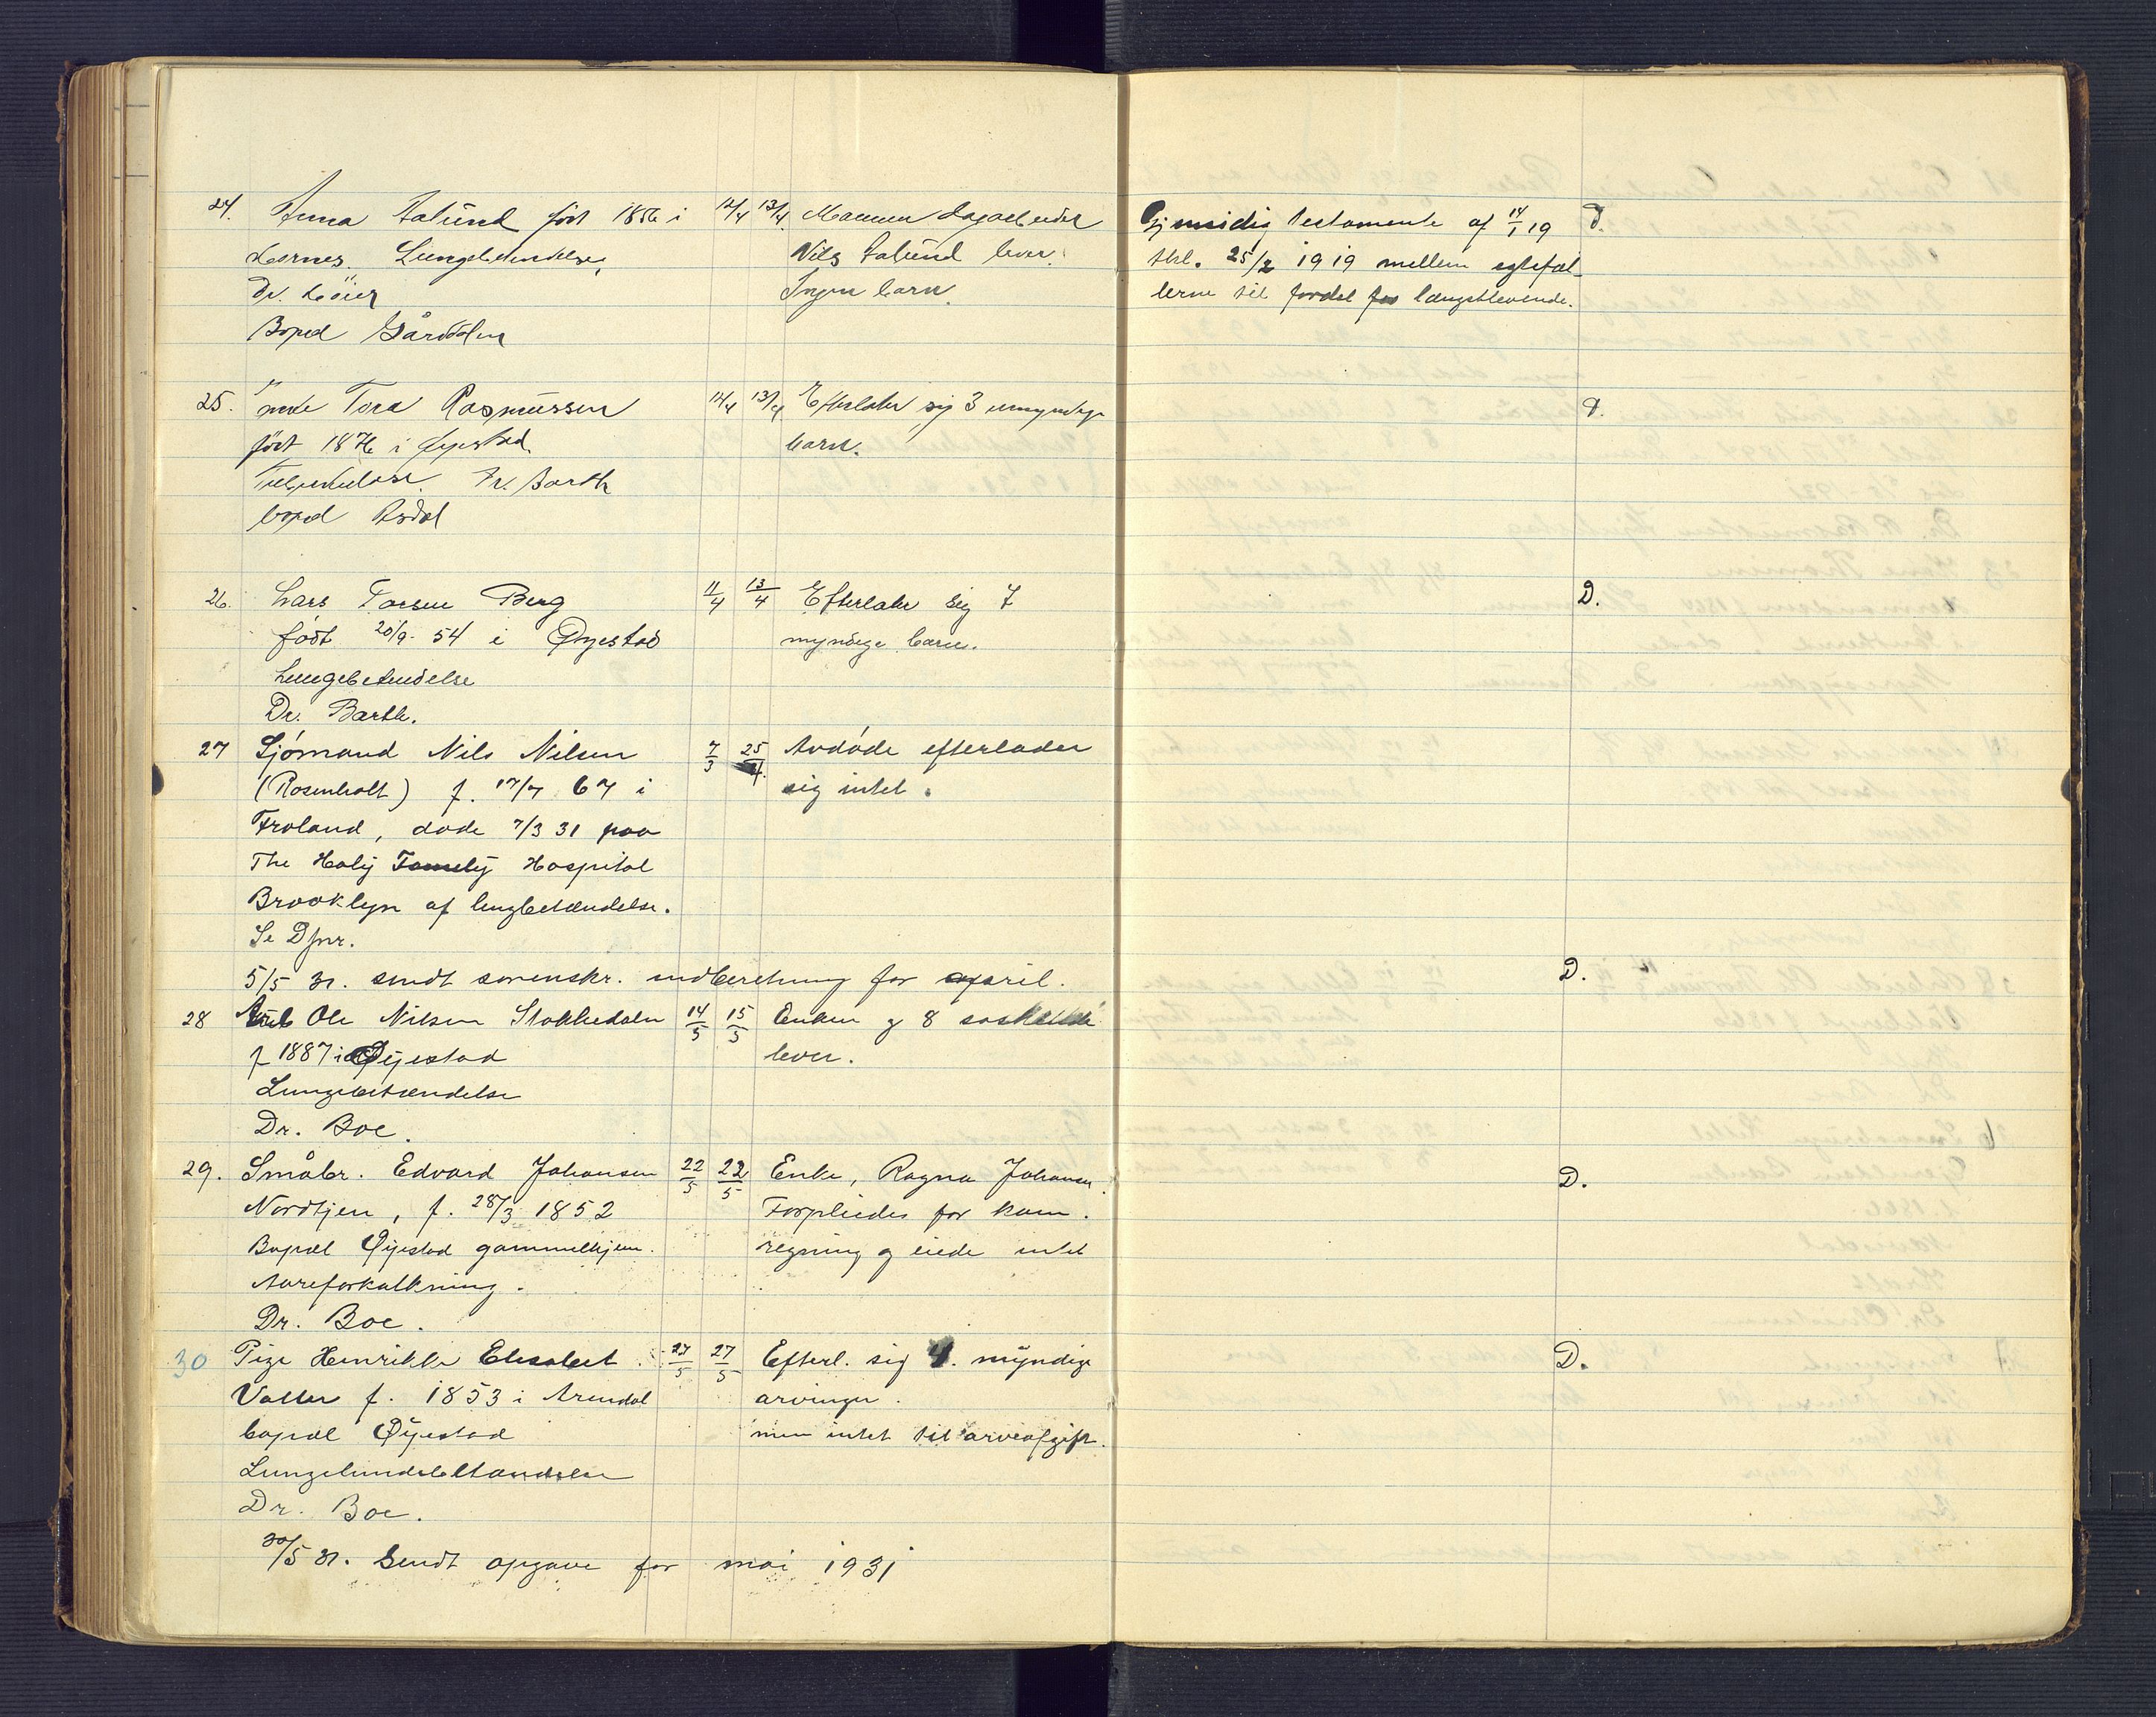 24. Anna født 1856 i 12/4 13/4. Manden dagarbeider Gjensidig testamente af 14/1 19 D.
Lungebetændelse, Nils lever. tkl. 25/2 1919 mellem egtefæl-
Dr. Ingen barn. lerne til fordel for længstlevende.
Bopæl
25. Enke Tora Rasmussen 12/4 13/4 Efterlater sig 3 umyndige D.
født 1876 i Øyestad barn.
Tuberkulose. Dr. Barth
bopæl Asdal
26. Lars Larsen Berg 11/4 13/4 Efterlater sig 7 D.
født 20/9-54 i Øyestad myndige barn.
Lungebetendelse
Dr. Barth.
27 Sjømand Nils Nilsen 7/3 25/4. Avdøde efterlader
(Rosenholt) f. 17/7 67 i sig intet.
Froland, døde 7/3 31 paa
The Holy Family Hospital
Brooklyn af lungbetændelse.
Se Djnr.
5/5 31. sendt sorenskr. indberetning for april. D.
28 Ole Nilsen Stokkedalen 14/5 15/5 Enken og 8 søskende
f 1887 i Øyestad lever.
Lungebetændelse
Dr. Boe.
29. Småbr. Edvard Johansen 22/5 22/5 Enke, Ragna Johansen. D.
Nordtjen, f. 28/3 1852 Forpleiedes for kom.
Bopæl Øyestad gammelhjem. regning og eiede intet
Aareforkalkning.
Dr. Boe.
30 Pige Henrikke Elisabet 27/5 27/5 Efterl. sig 4. myndige D.
f. 1853 i Arendal arvinger.
bopæl Øyestad men intet til arveafgift.
Dr. Boe.
30/5 31. Sendt opgave for mai 1931